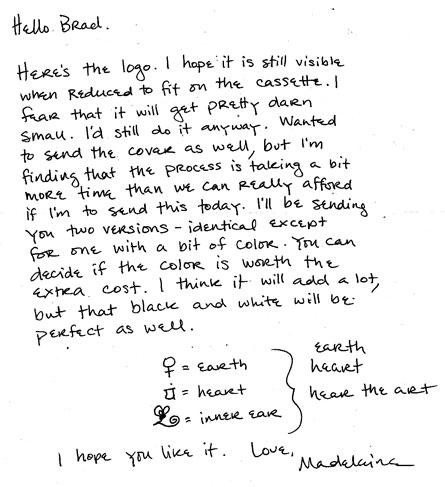 Hello Brad.
Here's the logo. I hope it is still visible
when reduced to fit on the cassette. I
fear that it will get pretty darn
small. I'd still do it anyway. Wanted
to send the cover as well, but I'm
finding that the process is taking a bit
more time than we can really afford
if I'm to send this today. I'll be sending
you two versions - identical except
for one with a bit of color. You can
decide if the color is worth the
extra cost. I think it will add a lot,
but that black and white will be
perfect as well.
♀ = earth
= heart
= inner ear
earth
heart
hear the art
I hope you like it. Love,
Madelaine